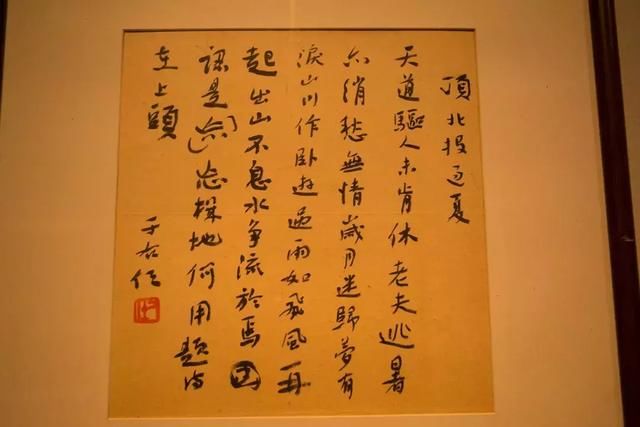 頂北投夏
天道驅人未肯休老夫逃暑
亦綃愁無情歲月迷歸夢有
淚山川作臥遊過雨如飛風再
起出山不息水爭流於焉
認是忘機地何用題詩
在上頭
于右任